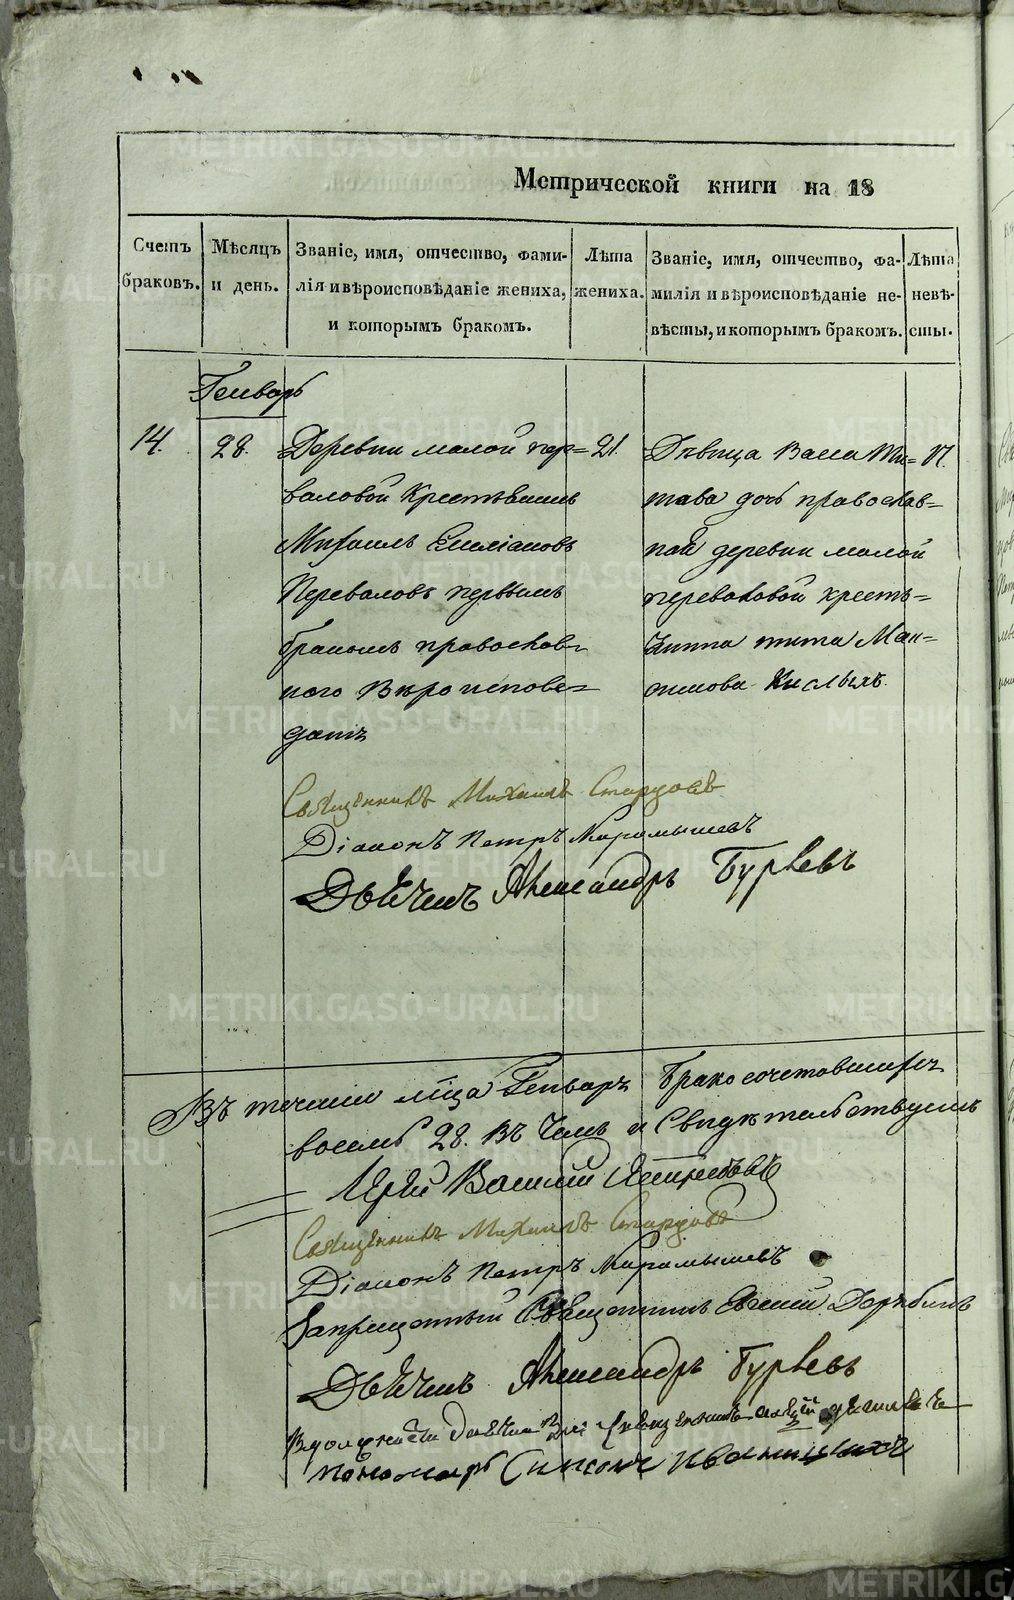 Метрической книги на 18
Счетъ браковъ.
Мѣсяцъ и день.
Званіе, имя, отчество, фами-
лія и вѣроисповѣданіе жениха,
и которымъ бракомъ.
Лѣта
жениха.
Званіе, имя, отчество, фа-
милія и вѣроисповѣданіе не-
вѣсты, и которымъ бракомъ.
Лѣта
невѣ-
сты.
Генварь
14.
28.
Деревни малой пер-
валовой Крестьянинъ
Михаилъ Емеліановъ
Переваловъ первымъ
бракомъ православ-
ного Вѣроисповѣ-
даніи
21.
Дѣвица Васса Ти-
това дочь православ-
ной деревни малой
переваловой кресть-
янина тита Мак-
симова Кислыхъ
17.
Священникъ Михаилъ
Діаконъ Петръ Карамышевъ
Дьячекъ Александръ Гурьевъ
Въ течении мца Генваря Бракосочетавшихся
восемь 28. Въ Чемъ и Свидѣтельствуемъ
Іерей Василий
Священникъ Михаилъ
Діаконъ Петръ Карамышевъ
Запрещенный Священникъ Евгений Дерябинъ
Дьячекъ Александръ Гурьевъ
Вдолжности дьячка
пономарь Симеонъ Иваницкихъ
METRIKI.GASO-URAL.RU